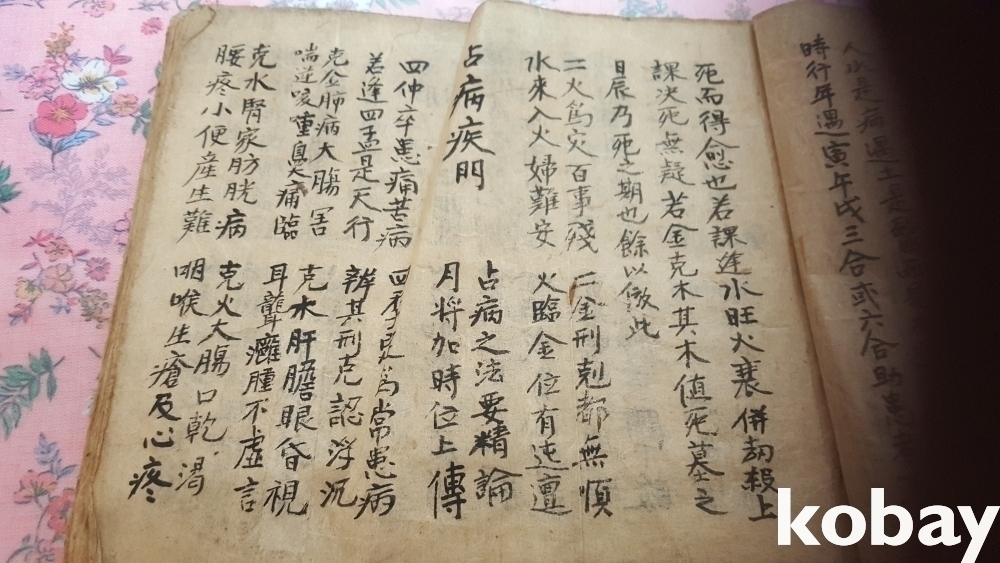 時行年遇寅午戌三合或六合助
死而得愈也若課逢水旺火衰併刼殺上
課决死無疑若金克木其木值死墓之
日辰乃死之期也餘以倣此
二火爲灾百事殘 二金刑剋都無順
水來入火婦難安 火臨金位有迍邅
占病疾門
占病之法要精論
月將加時位上傳
四仲卒患痛苦病 四季是爲常患病
若逢四孟是天行 辨其刑克認浮沉
克金肺病大腸害 克水肝膽眼昏視
喘逆咳嗽臭痛臨 耳聾癰腫不虛言
克水腎家肪胱病 克火大腸口乾渴
腰疼小便產生難 咽喉生瘡及心疼
kobay